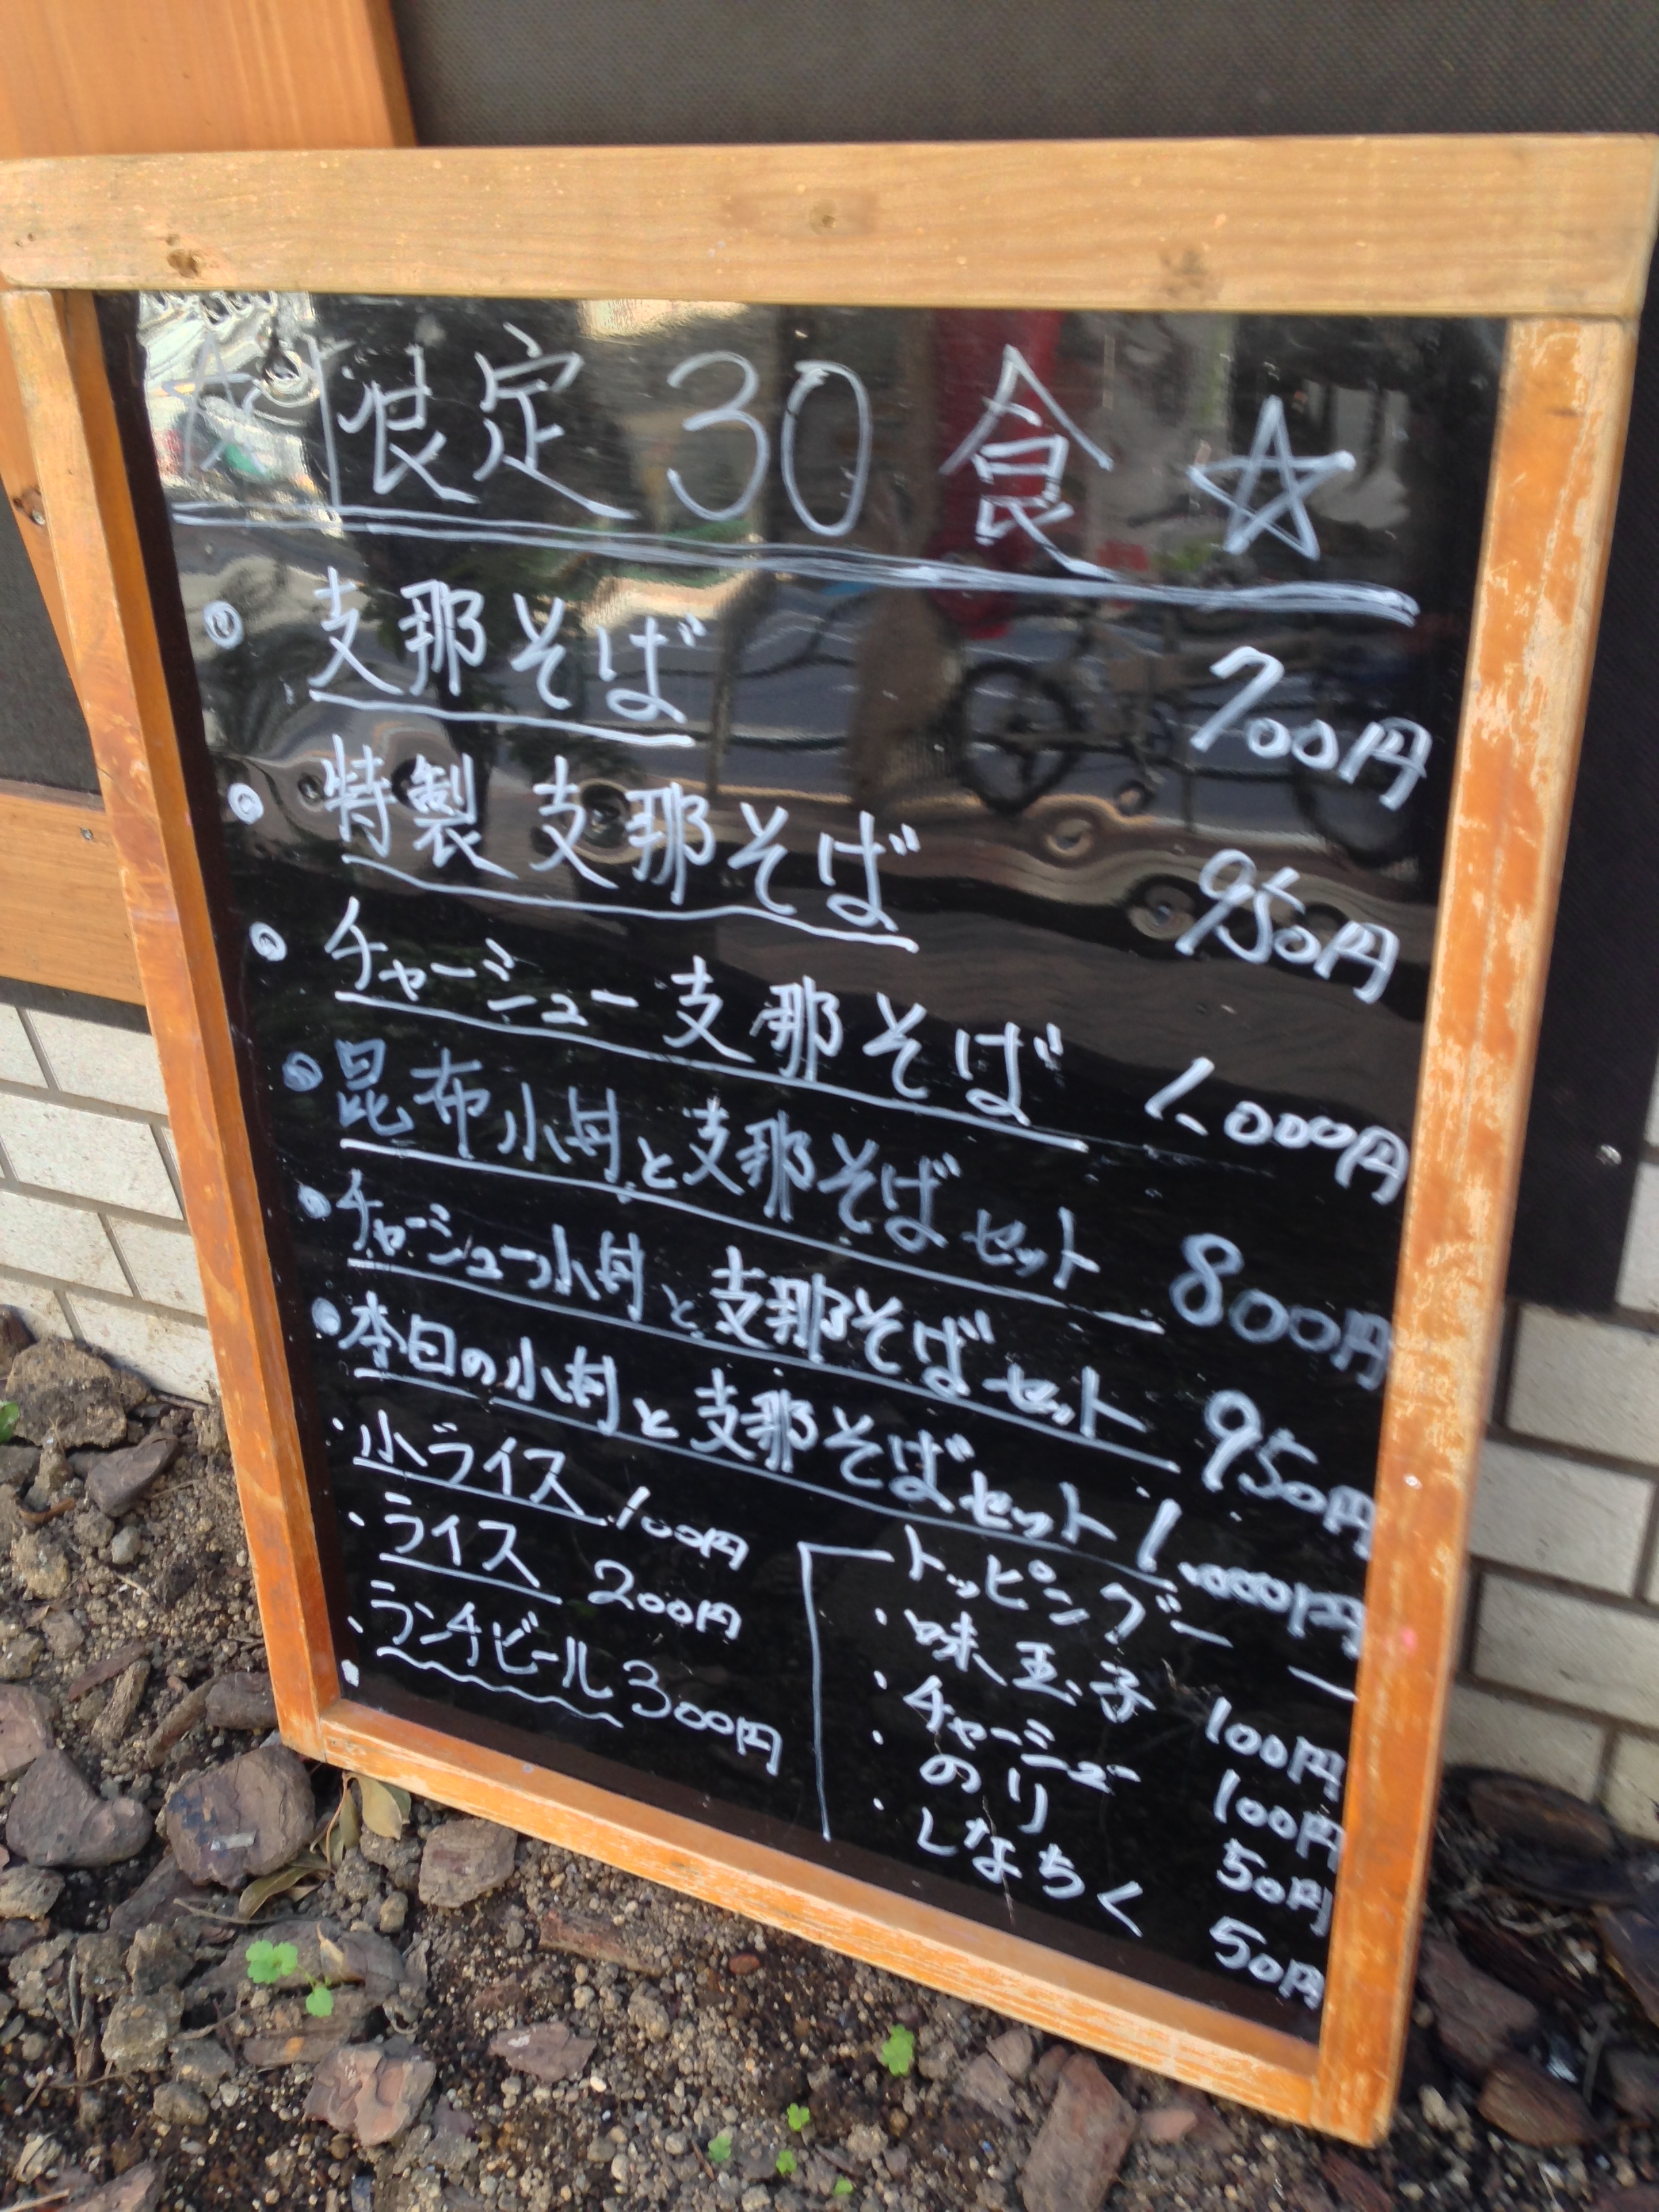 ☆限定30食☆
支那そば 700円
特製支那そば 950円
チャーシュー支那そば 1,000円
昆布小丼と支那そばセット 800円
チャーシュー小丼と支那そばセット 950円
本日の小丼と支那そばセット 1,000円
小ライス 100円
ライス 200円
ランチビール 300円
トッピング
・味玉子 100円
・チャーシュー 100円
・のり 50円
・しなちく 50円